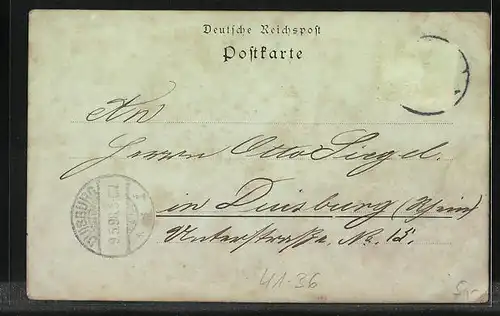 Deutsche Reichspost
Postkarte
An
Herrn Otto Siegel.
in Duisburg (Rhein)
Unterstraße. No. 15.
DUISBURG
9.5.98
41-36